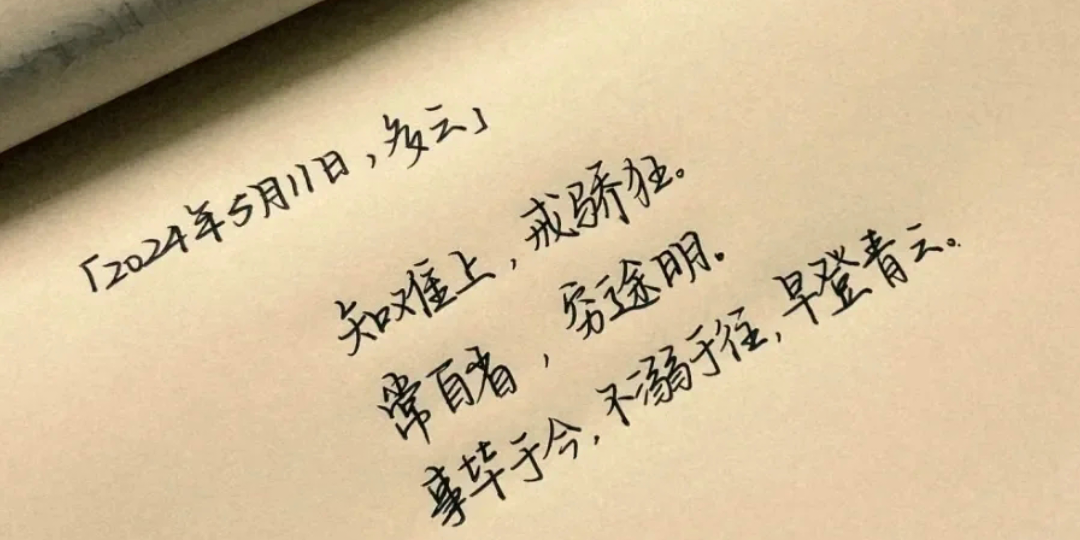 「2024年5月11日，多云」
知难上，戒骄狂。
常自省，穷途明。
事毕于今，不溺于往，早登青云。